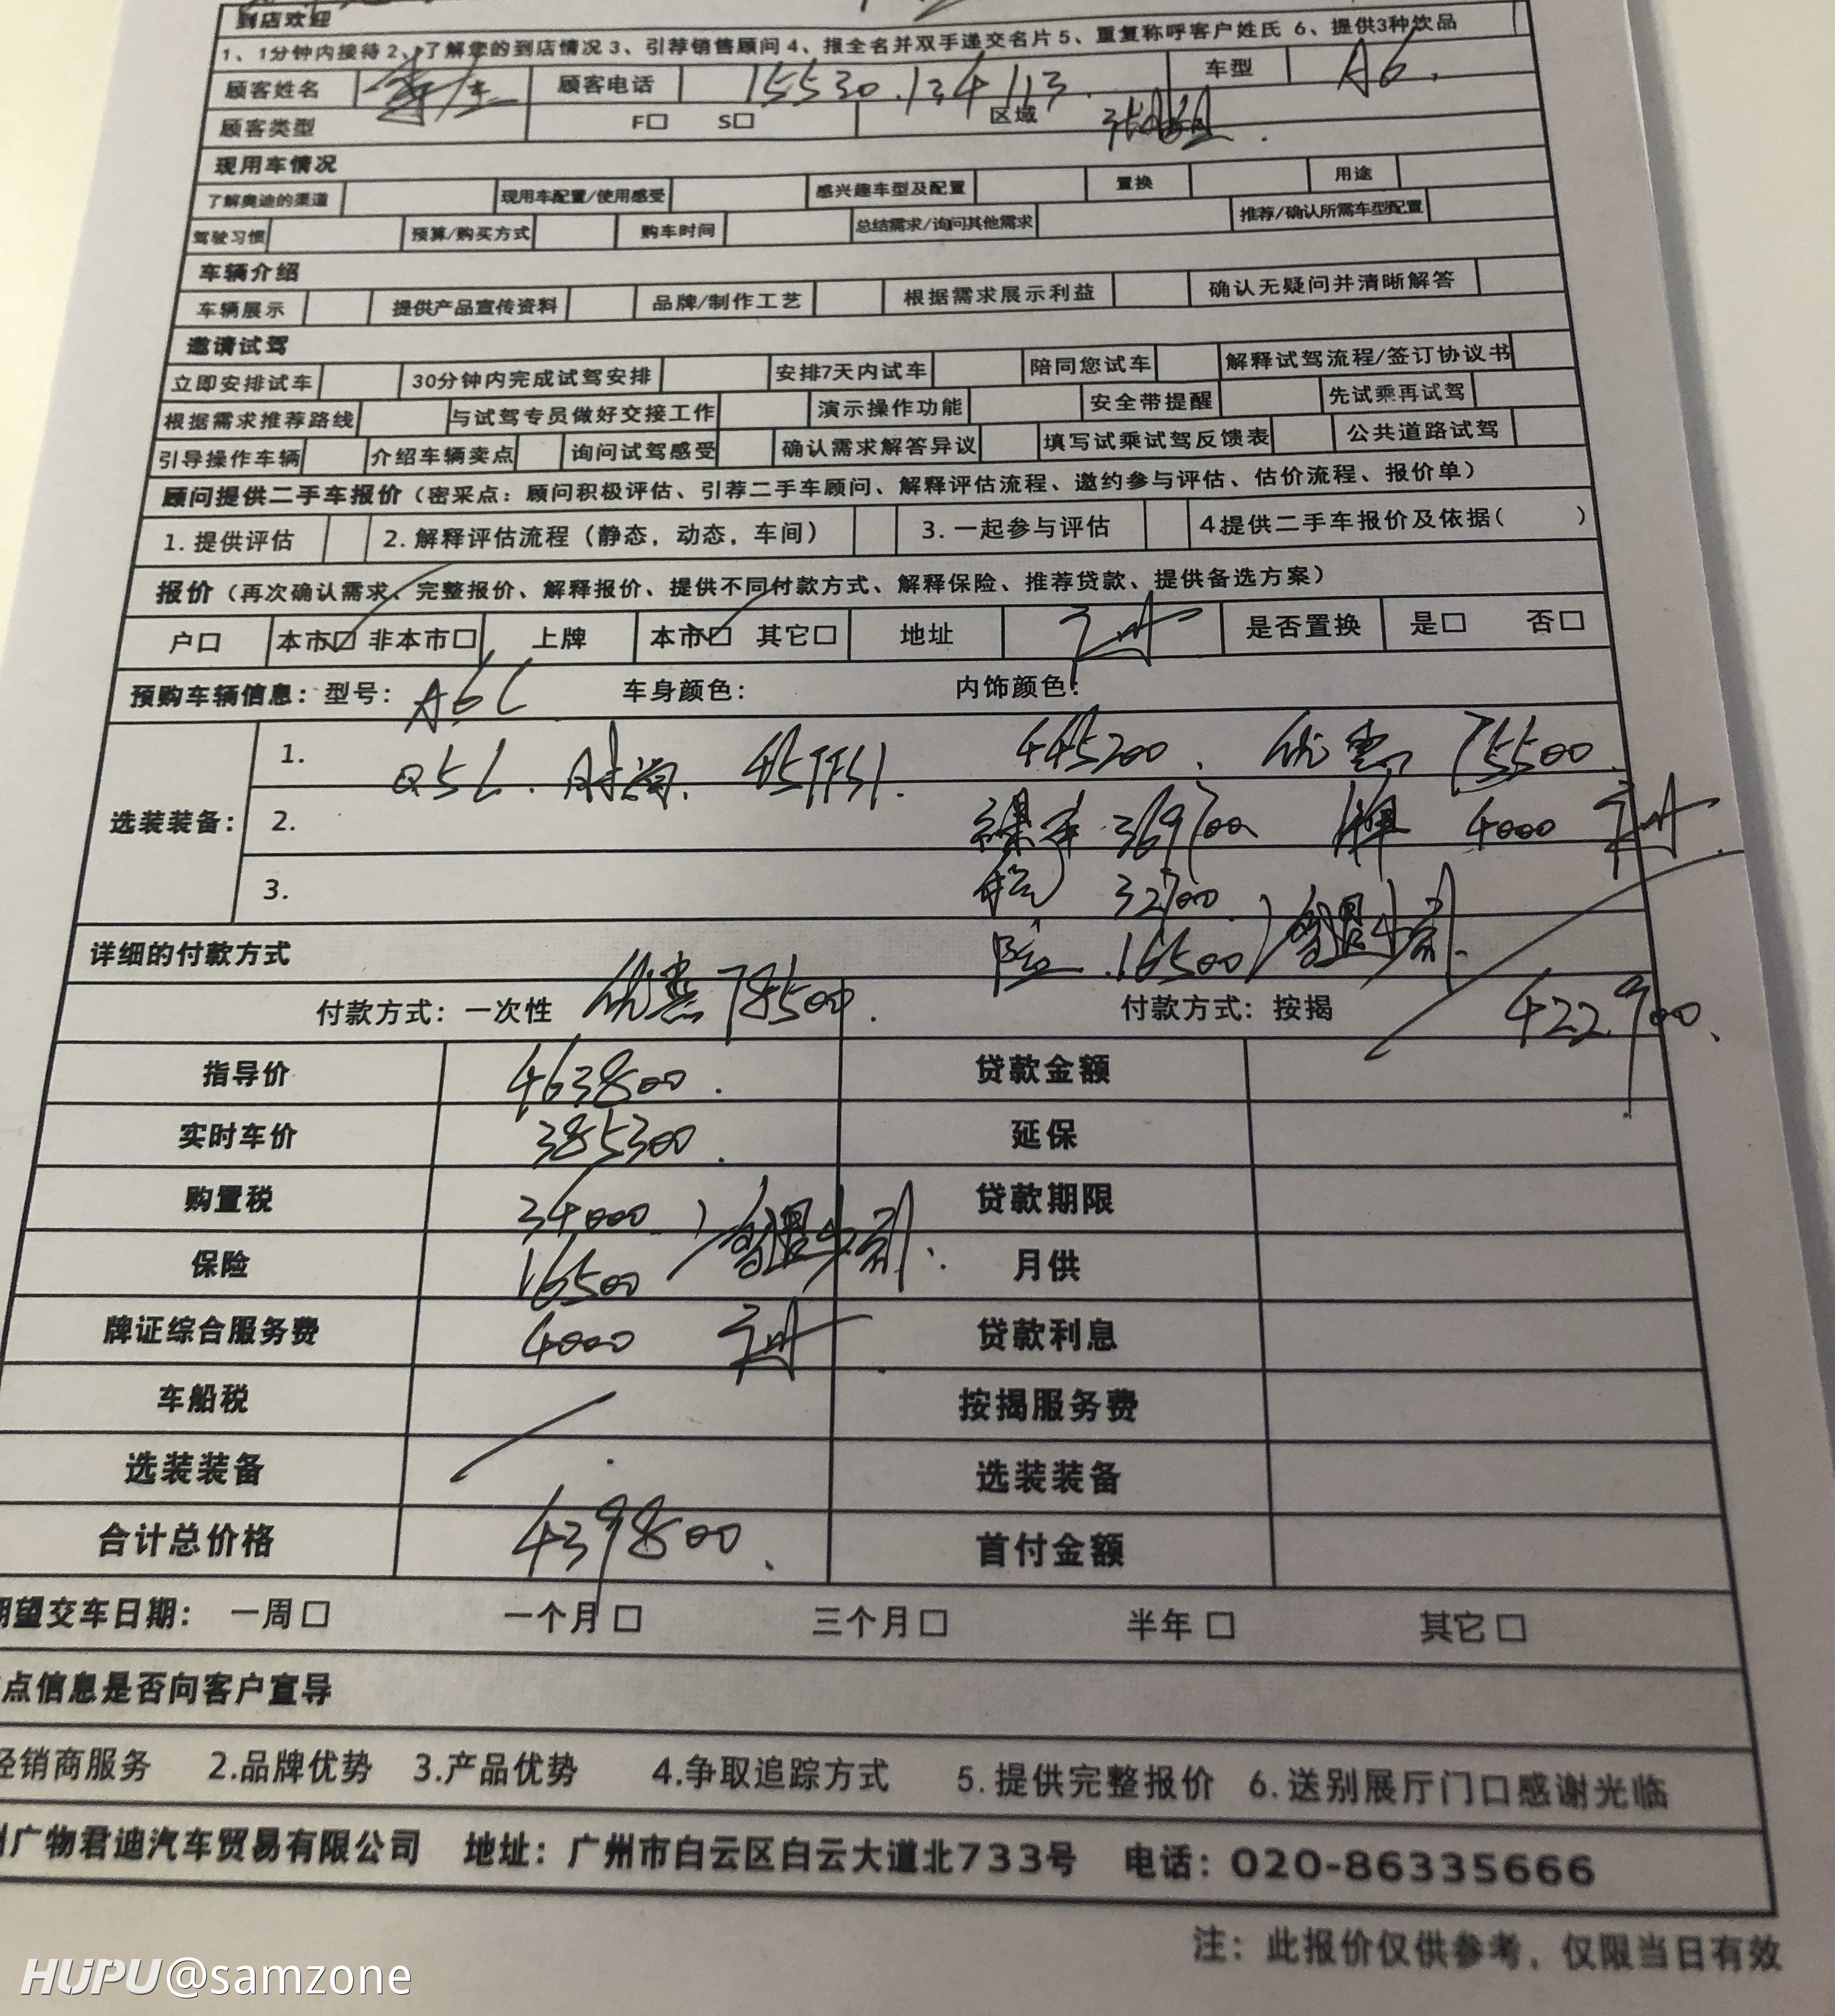 到店欢迎
1、1分钟内接待 2、了解您的到店情况 3、引荐销售顾问 4、报全名并双手递交名片 5、重复称呼客户姓氏 6、提供3种饮品
顾客姓名 顾客电话 15530.134113. 车型 A6.
顾客类型 F□ S□ 区域
现用车情况
了解奥迪的渠道 现用车配置/使用感受 感兴趣车型及配置 置换 用途
驾驶习惯 预算/购买方式 购车时间 总结需求/询问其他需求 推荐/确认所需车型配置
车辆介绍
车辆展示 提供产品宣传资料 品牌/制作工艺 根据需求展示利益 确认无疑问并清晰解答
邀请试驾
立即安排试车 30分钟内完成试驾安排 安排7天内试车 陪同您试车 解释试驾流程/签订协议书
根据需求推荐路线 与试驾专员做好交接工作 演示操作功能 安全带提醒 先试乘再试驾
引导操作车辆 介绍车辆卖点 询问试驾感受 确认需求解答异议 填写试乘试驾反馈表 公共道路试驾
顾问提供二手车报价（密采点：顾问积极评估、引荐二手车顾问、解释评估流程、邀约参与评估、估价流程、报价单）
1.提供评估 2.解释评估流程（静态，动态，车间） 3.一起参与评估 4提供二手车报价及依据( )
报价（再次确认需求、完整报价、解释报价、提供不同付款方式、解释保险、推荐贷款、提供备选方案）
户口 本市☑ 非本市□ 上牌 本市☑ 其它□ 地址 是否置换 是□ 否□
预购车辆信息：型号：A6L 车身颜色： 内饰颜色：
选装装备：
1. Q5L. 时尚. 45TFSI. 445200. 优惠 75500
2. 裸车 369700 牌 4000
3. 税 32700.
险 16500
详细的付款方式
付款方式：一次性 优惠 78500. 付款方式：按揭 422900.
指导价 463800. 贷款金额
实时车价 385300. 延保
购置税 34000 贷款期限
保险 16500 月供
牌证综合服务费 4000 贷款利息
车船税 按揭服务费
选装装备 选装装备
合计总价格 439800. 首付金额
期望交车日期： 一周□ 一个月□ 三个月□ 半年□ 其它□
点信息是否向客户宣导
经销商服务 2.品牌优势 3.产品优势 4.争取追踪方式 5.提供完整报价 6.送别展厅门口感谢光临
广物君迪汽车贸易有限公司 地址：广州市白云区白云大道北733号 电话：020-86335666
注：此报价仅供参考，仅限当日有效
HUPU@samzone